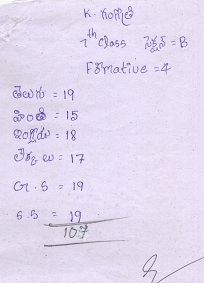 K. గంగోత్రి
7th class సెక్షన్ = B
Formative = 4
తెలుగు = 19
హింది = 15
ఇంగ్లీషు = 18
లెక్కలు = 17
G. S = 19
S. S = 19
107